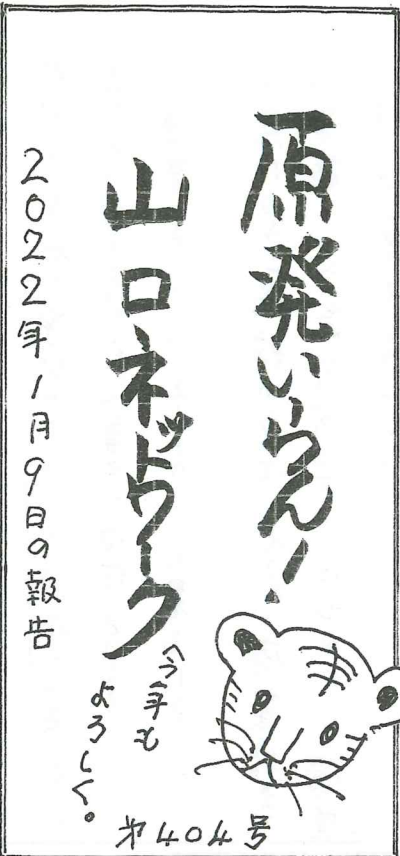 原発いらん!
山口ネットワーク
「今年も
よろしく。
2022年1月9日の報告
オ404号